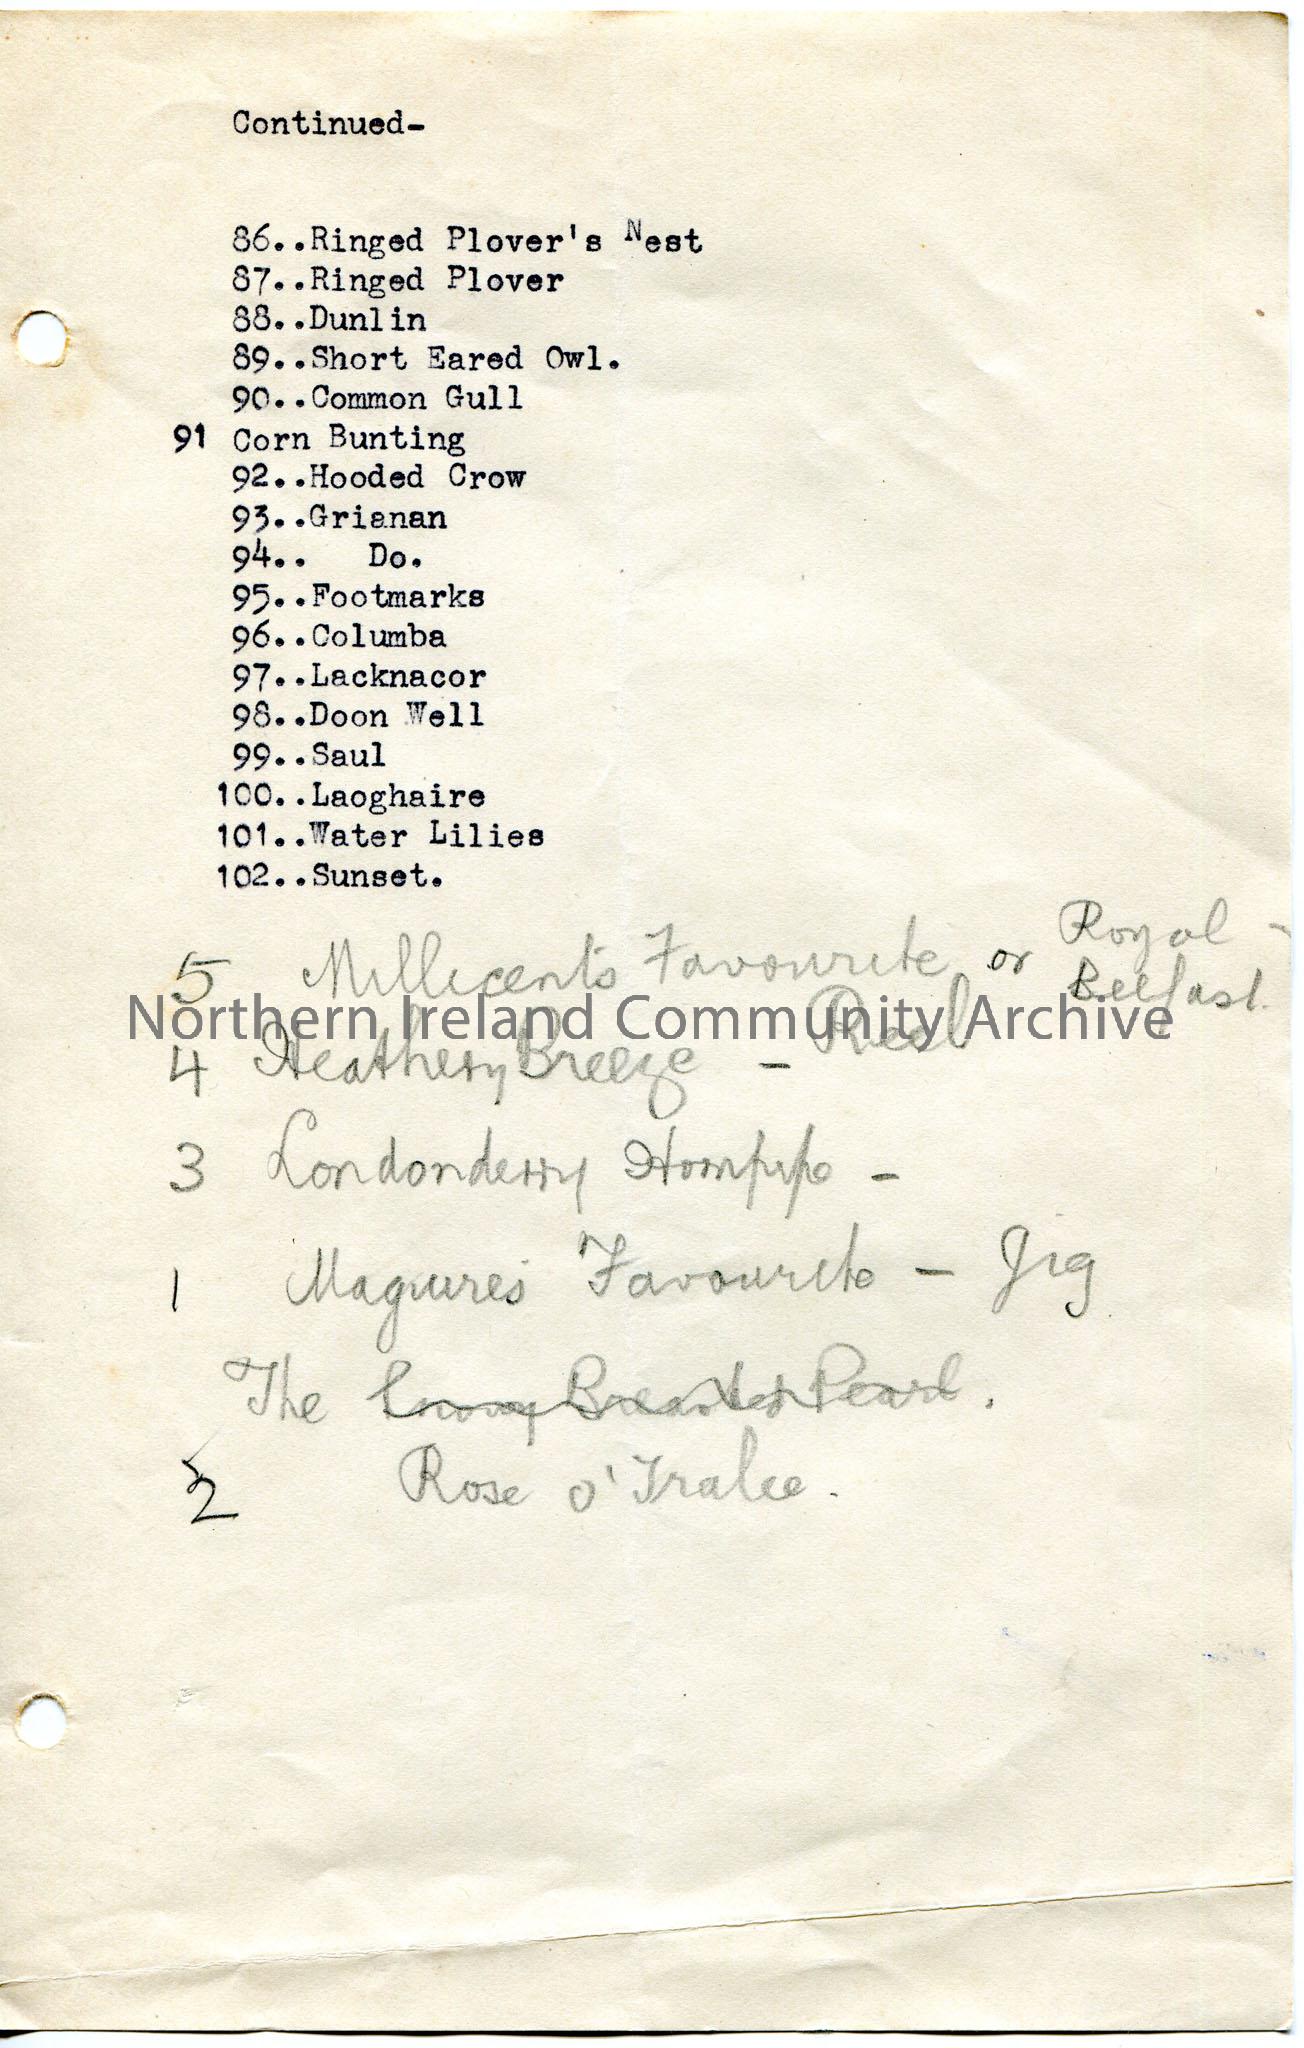 Continued-
86..Ringed Plover's Nest
87..Ringed Plover
88..Dunlin
89..Short Eared Owl.
90..Common Gull
91 Corn Bunting
92..Hooded Crow
93..Grianan
94.. Do.
95..Footmarks
96..Columba
97..Lacknacor
98..Doon Well
99..Saul
100..Laoghaire
101..Water Lilies
102..Sunset.
5 Millicent's Favourite or Royal - Belfast.
Northern Ireland Community Archive
4 Heathery Breeze - Reel
3 Londonderry Hornpipe -
1 Maguires Favourite - Jig
The Snowy Breasted Pearl.
2 Rose o' Tralee.